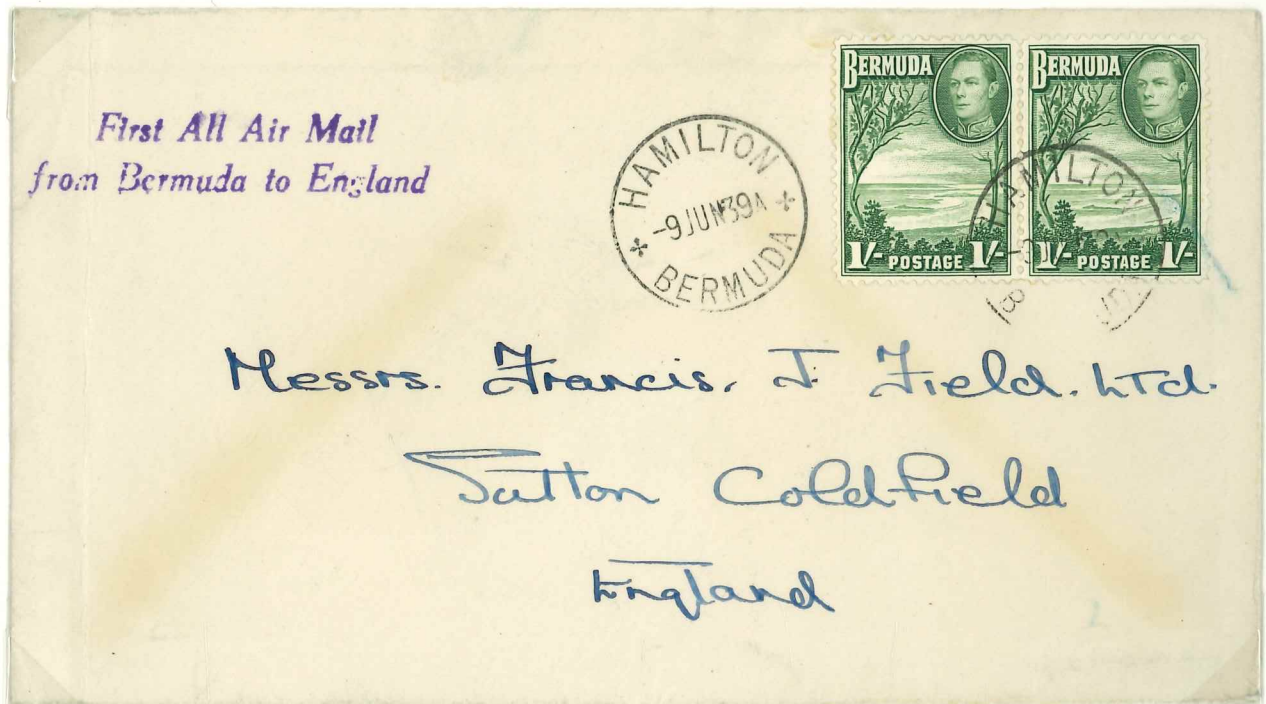 First All Air Mail
from Bermuda to England
HAMILTON
-9 JUN 39 A
BERMUDA
BERMUDA
1/- POSTAGE 1/-
BERMUDA
1/- POSTAGE 1/-
HAMILTON
Messrs. Francis. J. Field. LTd.
Sutton Coldfield
England